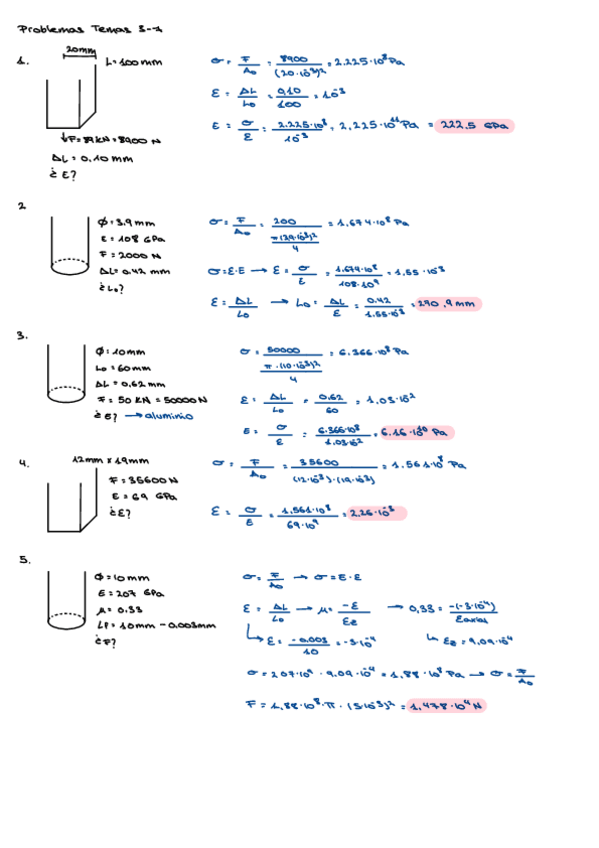 Problemas Temas 3-4
1.
20mm
L=100mm
F=89kN=8900 N
ΔL=0.10 mm
¿E?
σ = F/A₀ = 8900/(20·10⁻³)² = 2.225·10⁸ Pa
ε = ΔL/L₀ = 0.10/100 = 10⁻³
E = σ/ε = 2.225·10⁸/10⁻³ = 2,225·10¹¹ Pa = 222,5 GPa
2.
Ø=3.9mm
E=108 GPa
F=2000N
ΔL=0.42 mm
¿L₀?
σ = F/A₀ = 200/(π(3.9·10⁻³)²/4) = 1,674·10⁸ Pa
σ=E·ε → ε = σ/E = 1.674·10⁸/108·10⁹ = 1,55·10⁻³
ε = ΔL/L₀ → L₀ = ΔL/ε = 0.42/1.55·10⁻³ = 290,9 mm
3.
Ø=10mm
L₀=60mm
ΔL=0.62mm
F=50 KN=50000N
¿E? → aluminio
σ = 50000/(π·(10·10⁻³)²/4) = 6.366·10⁸ Pa
ε = ΔL/L₀ = 0.62/60 = 1,03·10⁻²
E = σ/ε = 6.366·10⁸/1.03·10⁻² = 6.16·10¹⁰ Pa
4.
12mm x 19mm
F=35600N
E=69 GPa
¿ε?
σ = F/A₀ = 35600/(12·10⁻³)·(19·10⁻³) = 1.561·10⁸ Pa
ε = σ/E = 1,561·10⁸/69·10⁹ = 2,26·10⁻³
5.
Ø=10mm
E=207 GPa
μ=0.33
LF=10mm-0.003mm
¿F?
σ = F/A₀ → σ=E·ε
ε = ΔL/L₀ → μ = -ε/εz → 0,33 = -(-3·10⁻⁴)/εaxial
ε = -0.003/10 = -3·10⁻⁴
εz=9,09·10⁻⁴
σ=207·10⁹·9.09·10⁻⁴=1,88·10⁸ Pa → σ = F/A₀
F=1,88·10⁸·π·(5·10⁻³)²=1,478·10⁴ N